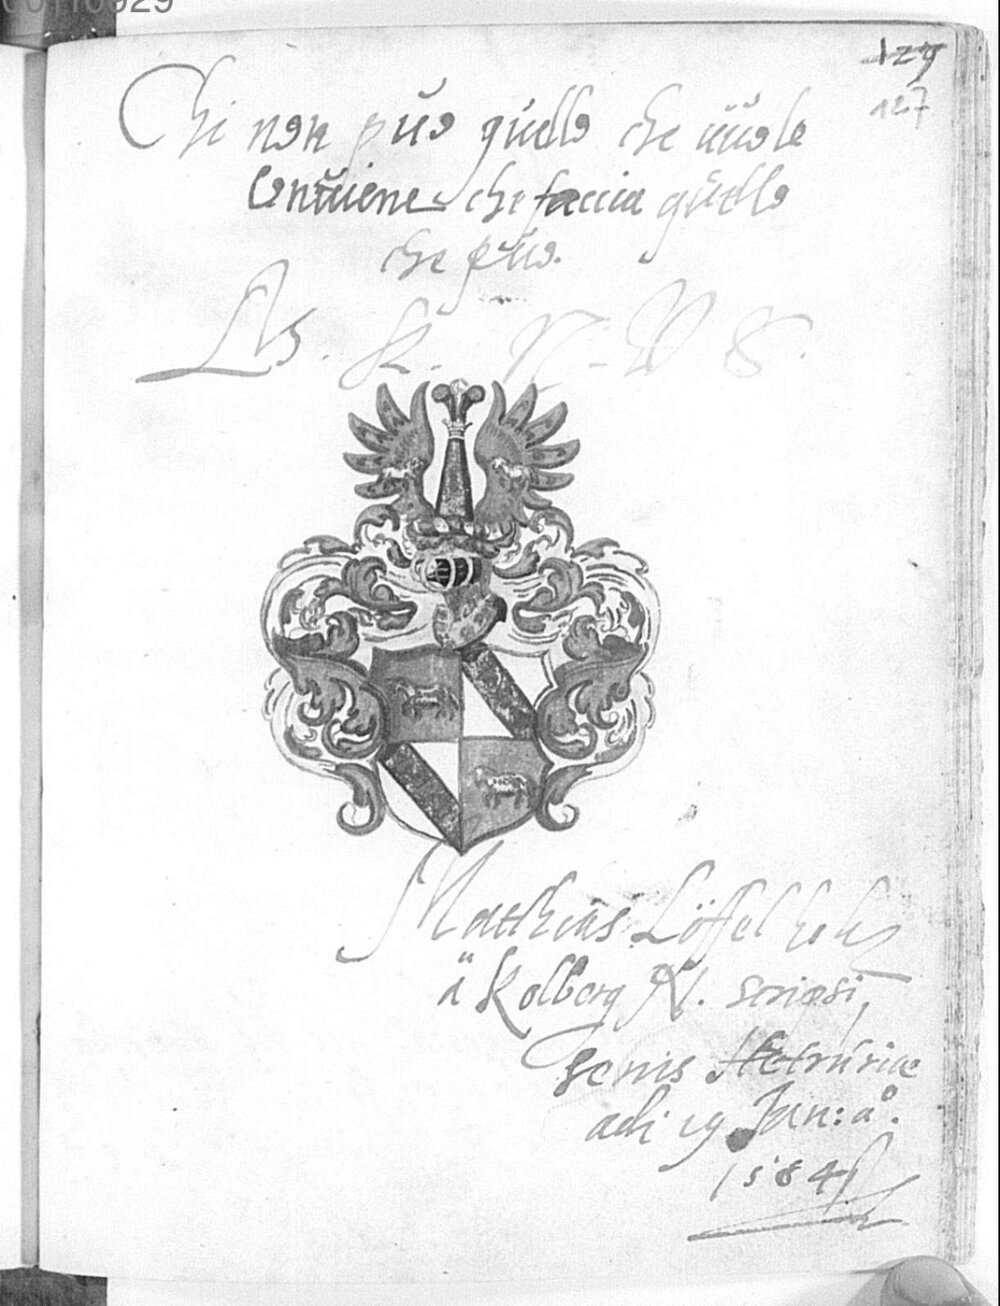 129
127
Chi non può quello che vuole
Conuiene che faccia quello
che può.
Matthias Löffelholz
ä Kolberg N. scripsi,
Senis Hetruriae
adi 19 Jan: aº.
1584